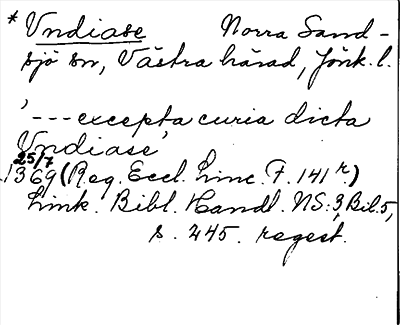 * Vndiase Norra Sand-
sjö sn, Västra härad, Jönk. l.
'--- excepta curia dicta
Vndiase'
25/7
1369 (Reg. Eccl. Linc. F. 141 r.)
Link. Bibl. Handl. NS:3, Bil. 5,
s. 245. regest.